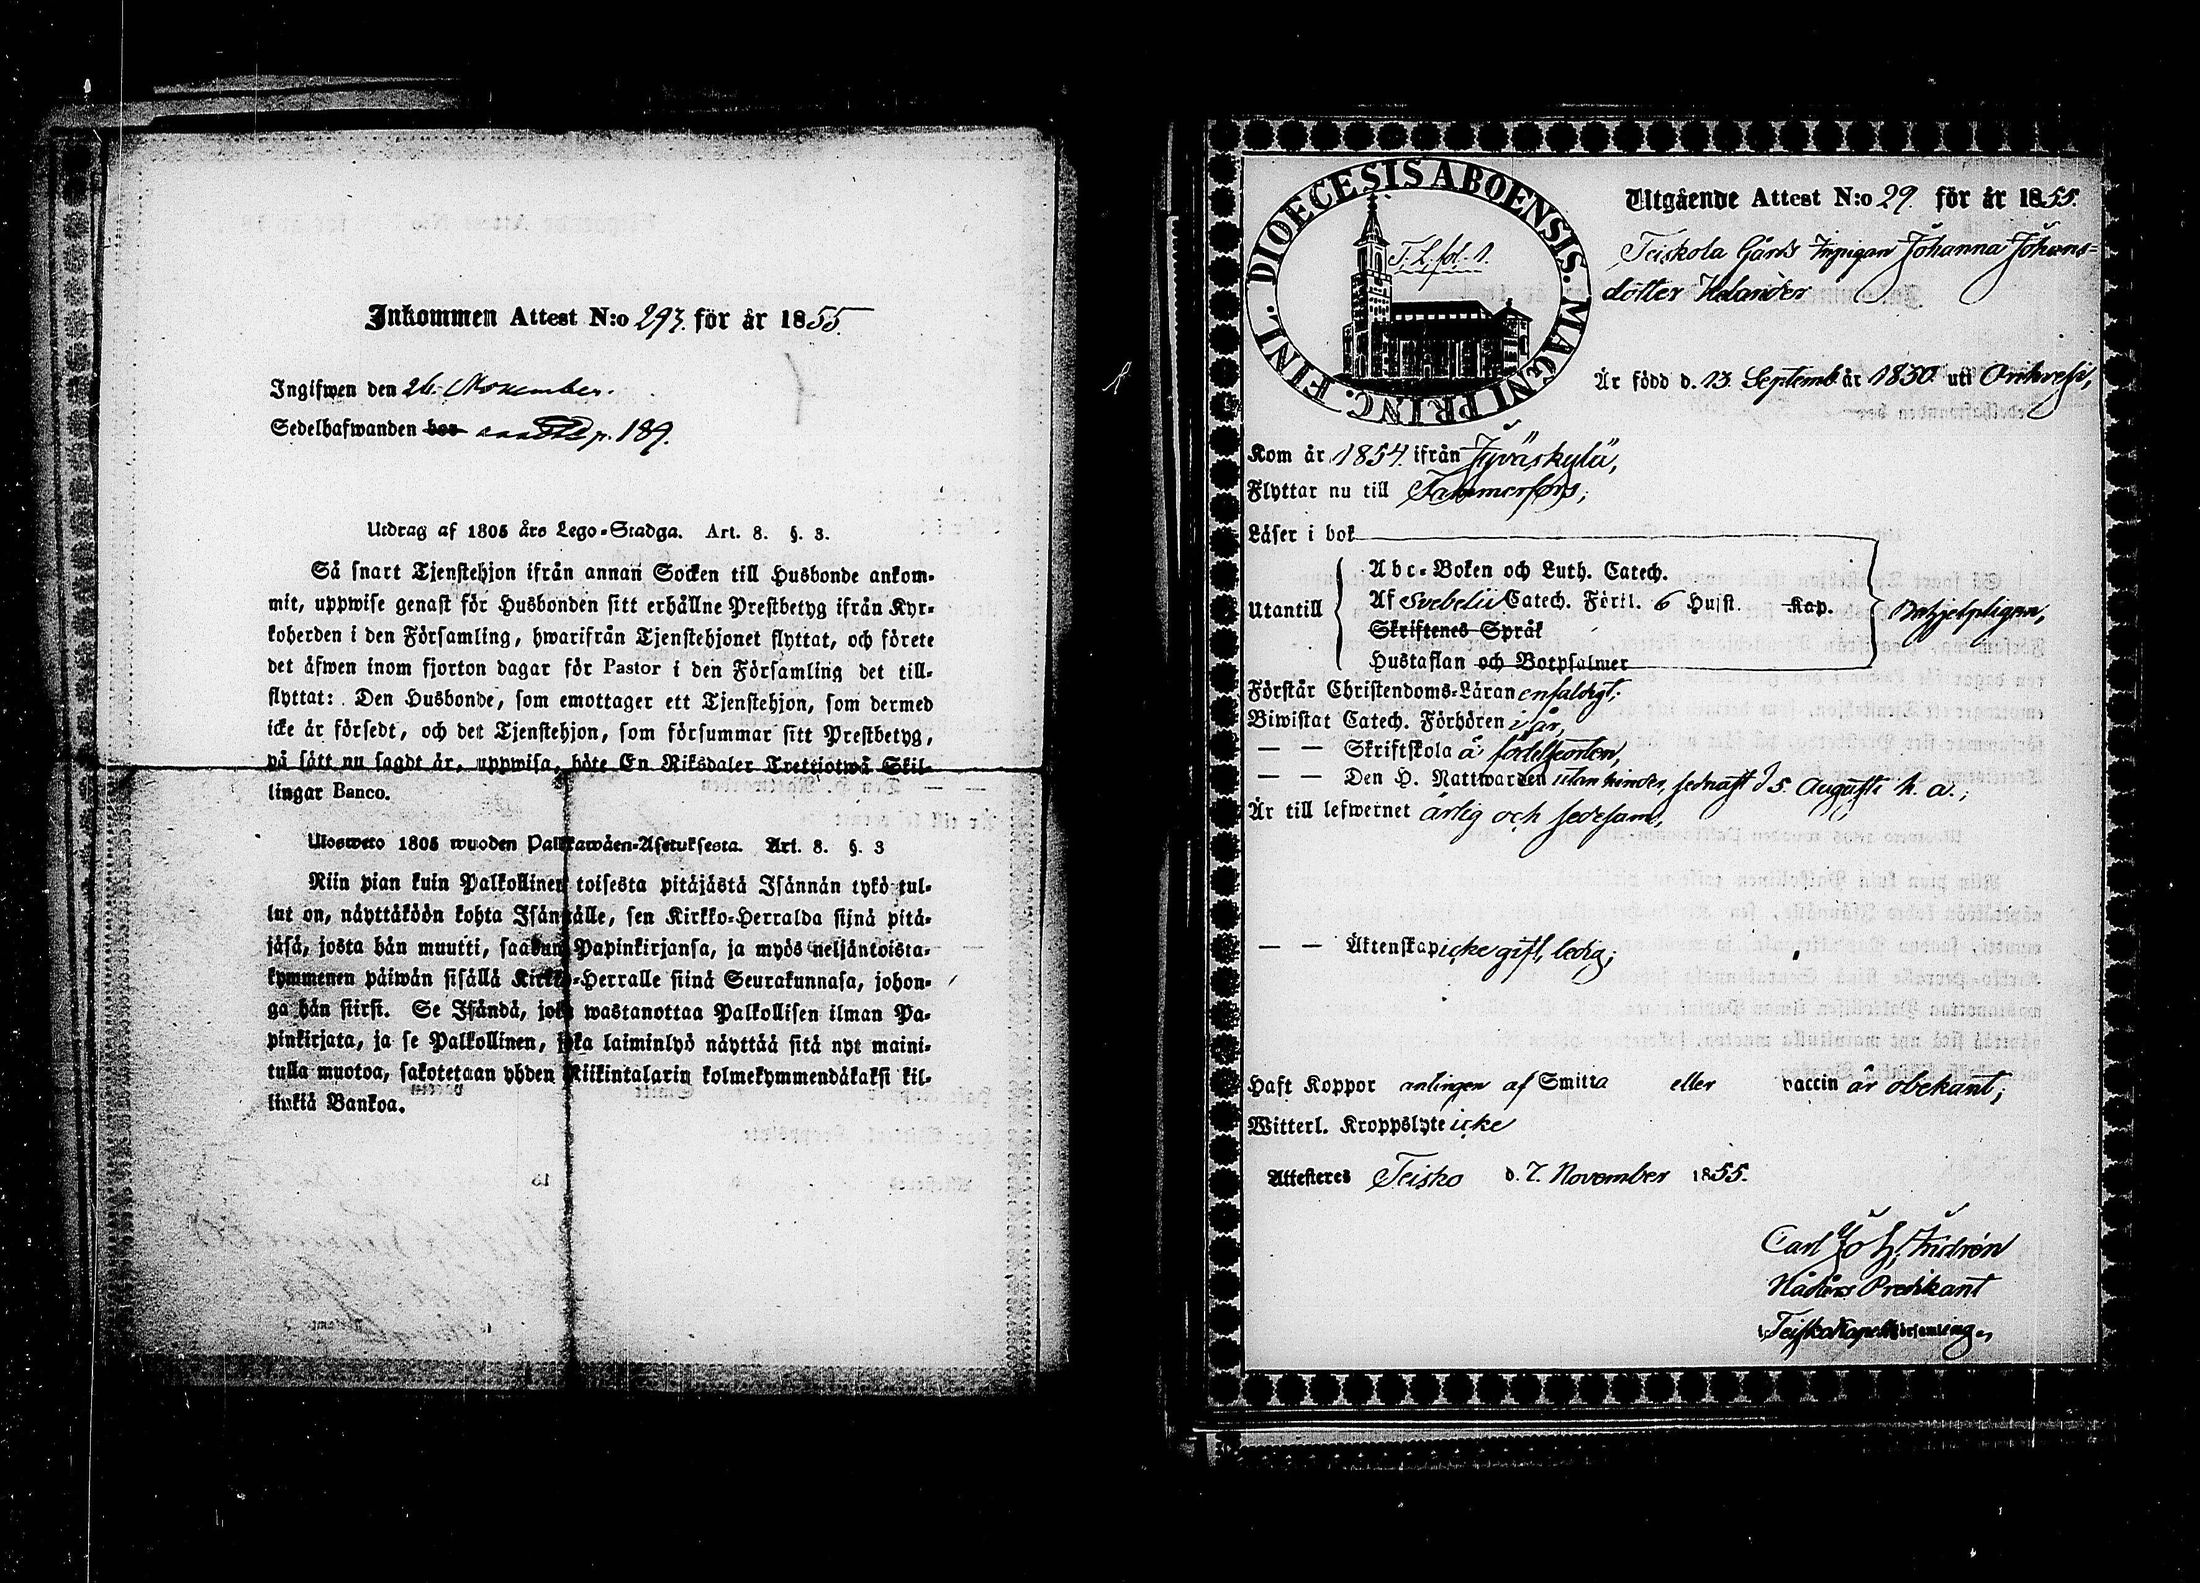 Inkommen Attest N:o 293. för år 1855.
Ingifwen den 26. November.
Sedelhafwanden bor p. 189.
Utdrag af 1805 års Lego-Stadga. Art. 8. §. 3.
Så snart Tjenstehjon ifrån annan Socken till Husbonde ankom-
mit, uppwise genast för Husbonden sitt erhållne Prestbetyg ifrån Kyr-
koherden i den Församling, hwarifrån Tjenstehjonet flyttat, och förete
det äfwen inom fjorton dagar för Pastor i den Församling det till-
flyttat: Den Husbonde, som emottager ett Tjenstehjon, som dermed
icke är försedt, och det Tjenstehjon, som försummar sitt Prestbetyg,
på sätt nu sagdt är, uppwisa, böte En Riksdaler Trettiotwå Skil-
lingar Banco.
Ulosweto 1805 wuoden Palkkawäen-Asetuksesta. Art. 8. §. 3
Niin pian kuin Palkollinen toisesta pitäjästä Isännän tykö tul-
lut on, näyttäköön kohta Isännälle, sen Kirkko-Herralda siinä pitä-
jäsä, josta hän muutti, saadun Papinkirjansa, ja myös neljäntoista-
kymmenen päiwän sisällä Kirkko-Herralle siinä Seurakunnasa, johon-
ga hän siirsi. Se Isändä, joka wastanottaa Palkollisen ilman Pa-
pinkirjata, ja se Palkollinen, joka laiminlyö näyttää sitä nyt maini-
tulla muotoa, sakotetaan yhden Riikintalarin kolmekymmendäkaksi kil-
linkiä Bankoa.
DIOECESIS ABOENSIS. MAGNI PRINC. FINL.
T. L. fol. 1.
Utgående Attest N:o 29. för år 1855.
Teiskola Gårds Inpigan Johanna Johans-
dotter Helander
Är född d. 13. Septemb. år 1830. uti Orihvesi,
Kom år 1854. ifrån Jyväskylä,
Flyttar nu till Tammerfors;
Läser i bok
Utantill
Abc-Boken och Luth. Catech.
Af Svebelii Catech. Förkl. 6 Husst. Kap.
Skriftenes Språk
Hustaflan och Botpsalmer
Förstår Christendoms-Läran enfaldigt;
Biwistat Catech. Förhören i år,
— — Skriftskola å födelseorten,
— — Den H. Nattwarden utan hinder, sednast d 5. Augusti h. a.;
Är till lefwernet ärlig och sedesam,
— — Äktenskap icke gift, ledig;
Haft Koppor antingen af Smitta eller vaccin är obekant;
Witterl. Kroppslyte icke
Attesteres Teisko d. 7. November 1855.
Carl
Predikant
i Teisko Kapells församling.